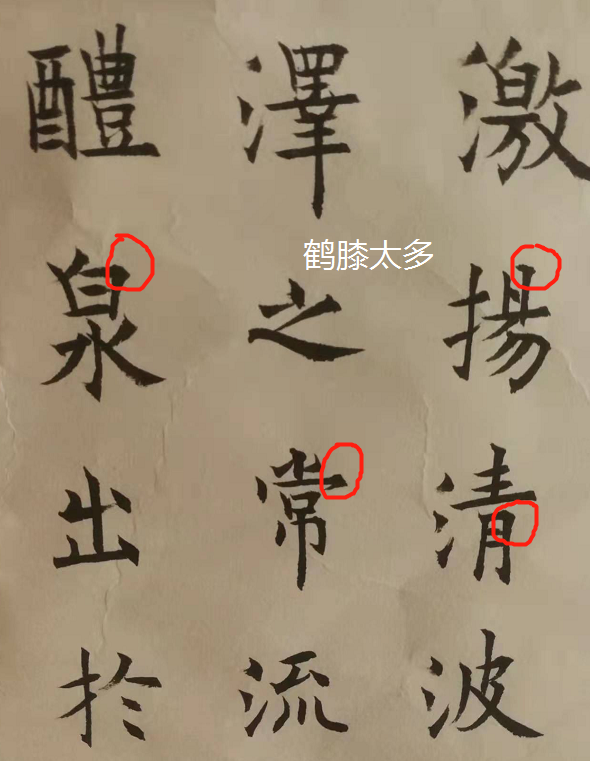 激揚清波
澤之常流
醴泉出於
鹤膝太多